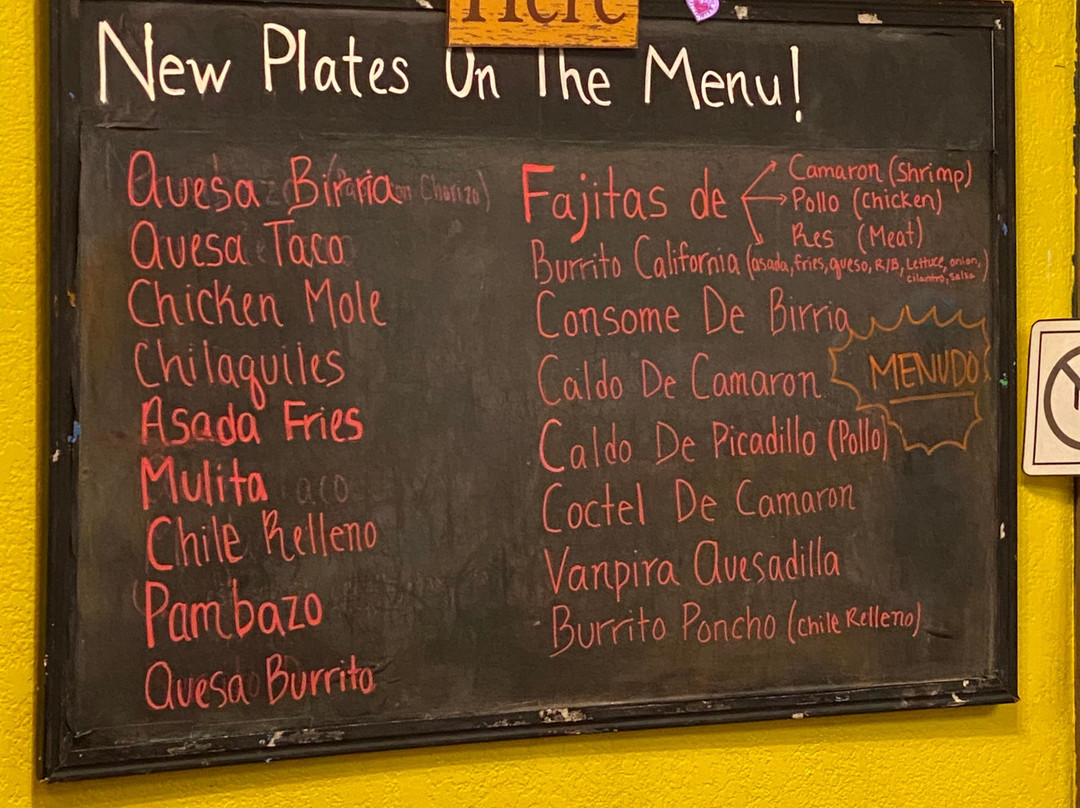 Here
New Plates On The Menu!
Quesa Birria
Quesa Taco
Chicken Mole
Chilaquiles
Asada Fries
Mulita
Chile Relleno
Pambazo
Quesa Burrito
Fajitas de
Camaron (Shrimp)
Pollo (Chicken)
Res (Meat)
Burrito California (asada, fries, queso, R/B, Lettuce, onion,
cilantro, Salsa
Consome De Birria
Caldo De Camaron
MENUDO
Caldo De Picadillo (Pollo)
Coctel De Camaron
Vanpira Quesadilla
Burrito Poncho (chile Relleno)